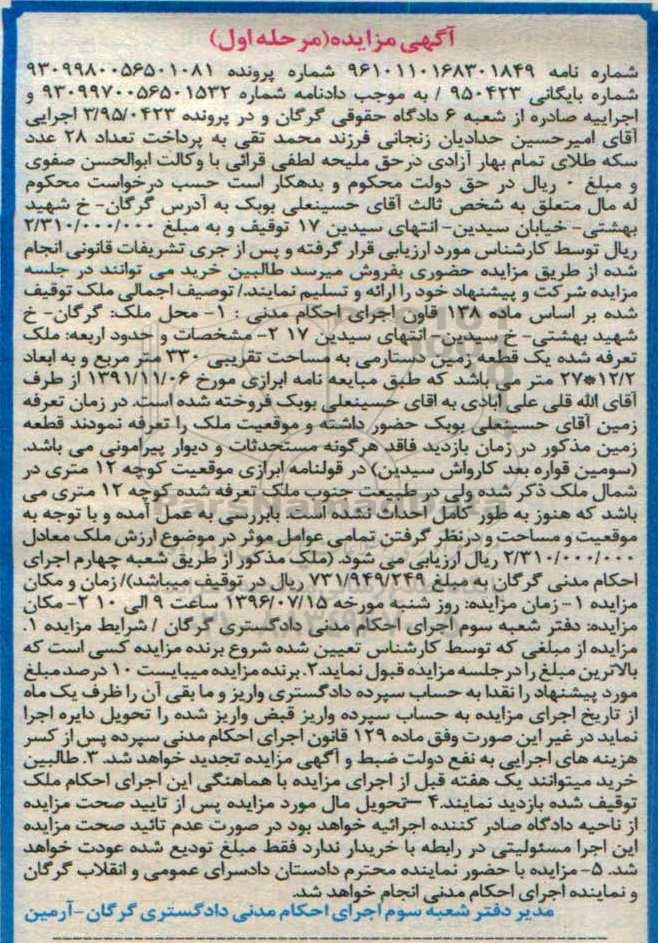 آگهی مزایده(مرحله اول)
شماره نامه ۹۶۱۰۱۱۰۱۶۸۳۰۱۸۴۹ شماره پرونده ۹۳۰۹۹۸۰۰۵۶۵۰۱۰۸۱
شماره بایگانی ۹۵۰۴۲۳ / به موجب دادنامه شماره ۹۳۰۹۹۷۰۰۵۶۵۰۱۵۳۲ و
اجراییه صادره از شعبه ۶ دادگاه حقوقی گرگان و در پرونده ۳/۹۵/۰۴۲۳ اجرایی
آقای امیرحسین حدادیان زنجانی فرزند محمد تقی به پرداخت تعداد ۲۸ عدد
سکه طلای تمام بهار آزادی درحق ملیحه لطفی قرائی با وکالت ابوالحسن صفوی
و مبلغ ۰ ریال در حق دولت محکوم و بدهکار است حسب درخواست محکوم
له مال متعلق به شخص ثالث آقای حسینعلی بوبک به آدرس گرگان- خ شهید
بهشتی- خیابان سیدین- انتهای سیدین ۱۷ توقیف و به مبلغ ۲/۳۱۰/۰۰۰/۰۰۰
ریال توسط کارشناس مورد ارزیابی قرار گرفته و پس از جری تشریفات قانونی انجام
شده از طریق مزایده حضوری بفروش میرسد طالبین خرید می توانند در جلسه
مزایده شرکت و پیشنهاد خود را ارائه و تسلیم نمایند./ توصیف اجمالی ملک توقیف
شده بر اساس ماده ۱۳۸ قاون اجرای احکام مدنی : ۱- محل ملک: گرگان- خ
شهید بهشتی- خ سیدین- انتهای سیدین ۱۷ ۲- مشخصات و حدود اربعه: ملک
تعرفه شده یک قطعه زمین دستارمی به مساحت تقریبی ۳۳۰ متر مربع و به ابعاد
۱۲/۲*۲۷ متر می باشد که طبق مبایعه نامه ابرازی مورخ ۱۳۹۱/۱۱/۰۶ از طرف
آقای الله قلی علی آبادی به اقای حسینعلی بوبک فروخته شده است. در زمان تعرفه
زمین آقای حسینعلی بوبک حضور داشته و موقعیت ملک را تعرفه نمودند قطعه
زمین مذکور در زمان بازدید فاقد هرگونه مستحدثات و دیوار پیرامونی می باشد.
(سومین قواره بعد کارواش سیدین) در قولنامه ابرازی موقعیت کوچه ۱۲ متری در
شمال ملک ذکر شده ولی در طبیعت جنوب ملک تعرفه شده کوچه ۱۲ متری می
باشد که هنوز به طور کامل احداث نشده است. بابررسی به عمل آمده و با توجه به
موقعیت و مساحت و درنظر گرفتن تمامی عوامل موثر در موضوع ارزش ملک معادل
۲/۳۱۰/۰۰۰/۰۰۰ ریال ارزیابی می شود. (ملک مذکور از طریق شعبه چهارم اجرای
احکام مدنی گرگان به مبلغ ۷۳۱/۹۴۹/۲۴۹ ریال در توقیف میباشد)/ زمان و مکان
مزایده ۱- زمان مزایده: روز شنبه مورخه ۱۳۹۶/۰۷/۱۵ ساعت ۹ الی ۱۰ ۲- مکان
مزایده: دفتر شعبه سوم اجرای احکام مدنی دادگستری گرگان / شرایط مزایده ۱.
مزایده از مبلغی که توسط کارشناس تعیین شده شروع برنده مزایده کسی است که
بالاترین مبلغ را در جلسه مزایده قبول نماید.۲. برنده مزایده میبایست ۱۰ درصد مبلغ
مورد پیشنهاد را نقدا به حساب سپرده دادگستری واریز و ما بقی آن را ظرف یک ماه
از تاریخ اجرای مزایده به حساب سپرده واریز قبض واریز شده را تحویل دایره اجرا
نماید در غیر این صورت وفق ماده ۱۲۹ قانون اجرای احکام مدنی سپرده پس از کسر
هزینه های اجرایی به نفع دولت ضبط و آگهی مزایده تجدید خواهد شد. ۳. طالبین
خرید میتوانند یک هفته قبل از اجرای مزایده با هماهنگی این اجرای احکام ملک
توقیف شده بازدید نمایند.۴ –تحویل مال مورد مزایده پس از تایید صحت مزایده
از ناحیه دادگاه صادر کننده اجرائیه خواهد بود در صورت عدم تائید صحت مزایده
این اجرا مسئولیتی در رابطه با خریدار ندارد فقط مبلغ تودیع شده عودت خواهد
شد. ۵- مزایده با حضور نماینده محترم دادستان دادسرای عمومی و انقلاب گرگان
و نماینده اجرای احکام مدنی انجام خواهد شد.
مدیر دفتر شعبه سوم اجرای احکام مدنی دادگستری گرگان -آرمین